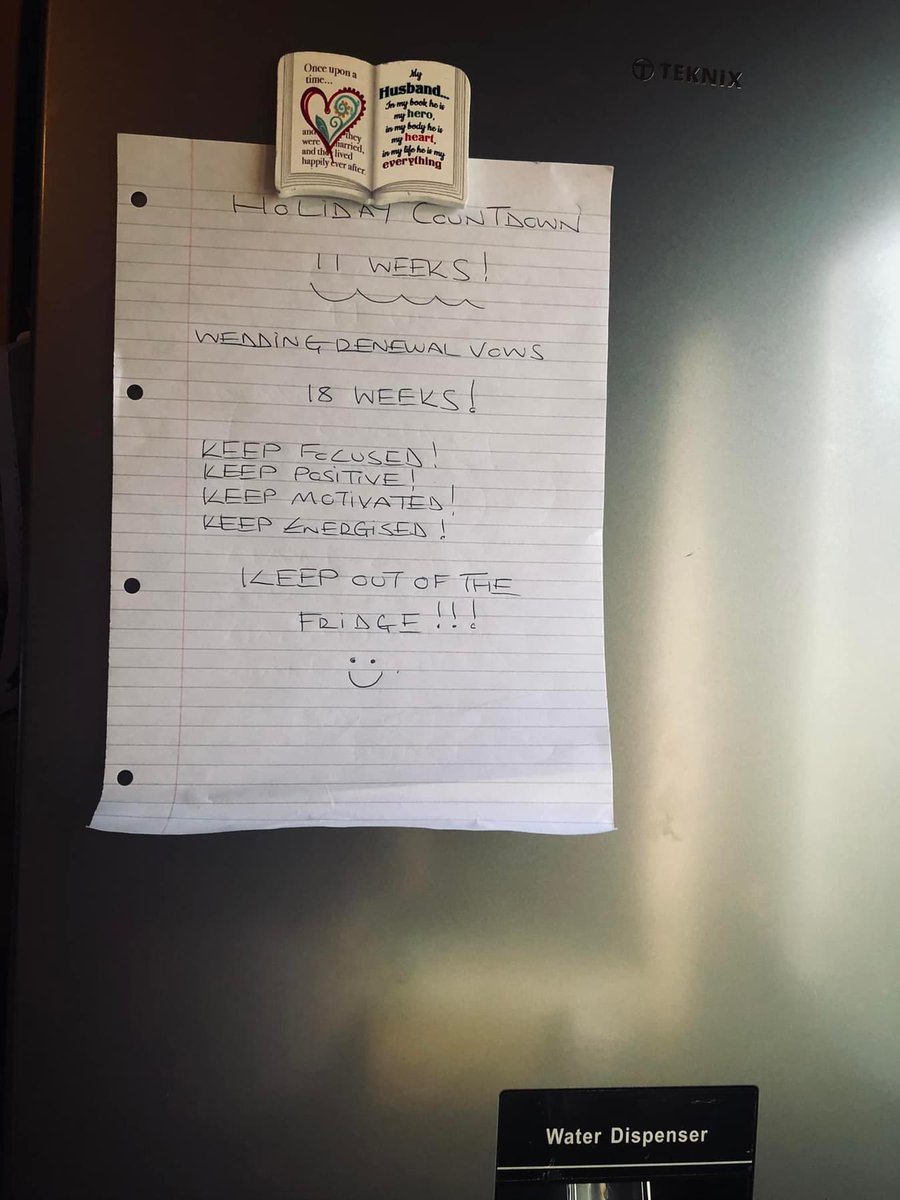 TEKNIX
Once upon a
time...
and they
were married,
and they lived
happily ever after
My
Husband...
In my book he is
my hero,
in my body he is
my heart,
in my life he is my
everything
HOLIDAY COUNTDOWN
11 WEEKS!
WEDDING RENEWAL VOWS
18 WEEKS!
KEEP FOCUSED!
KEEP POSITIVE!
KEEP MOTIVATED!
KEEP ENERGISED!
KEEP OUT OF THE
FRIDGE!!!
Water Dispenser